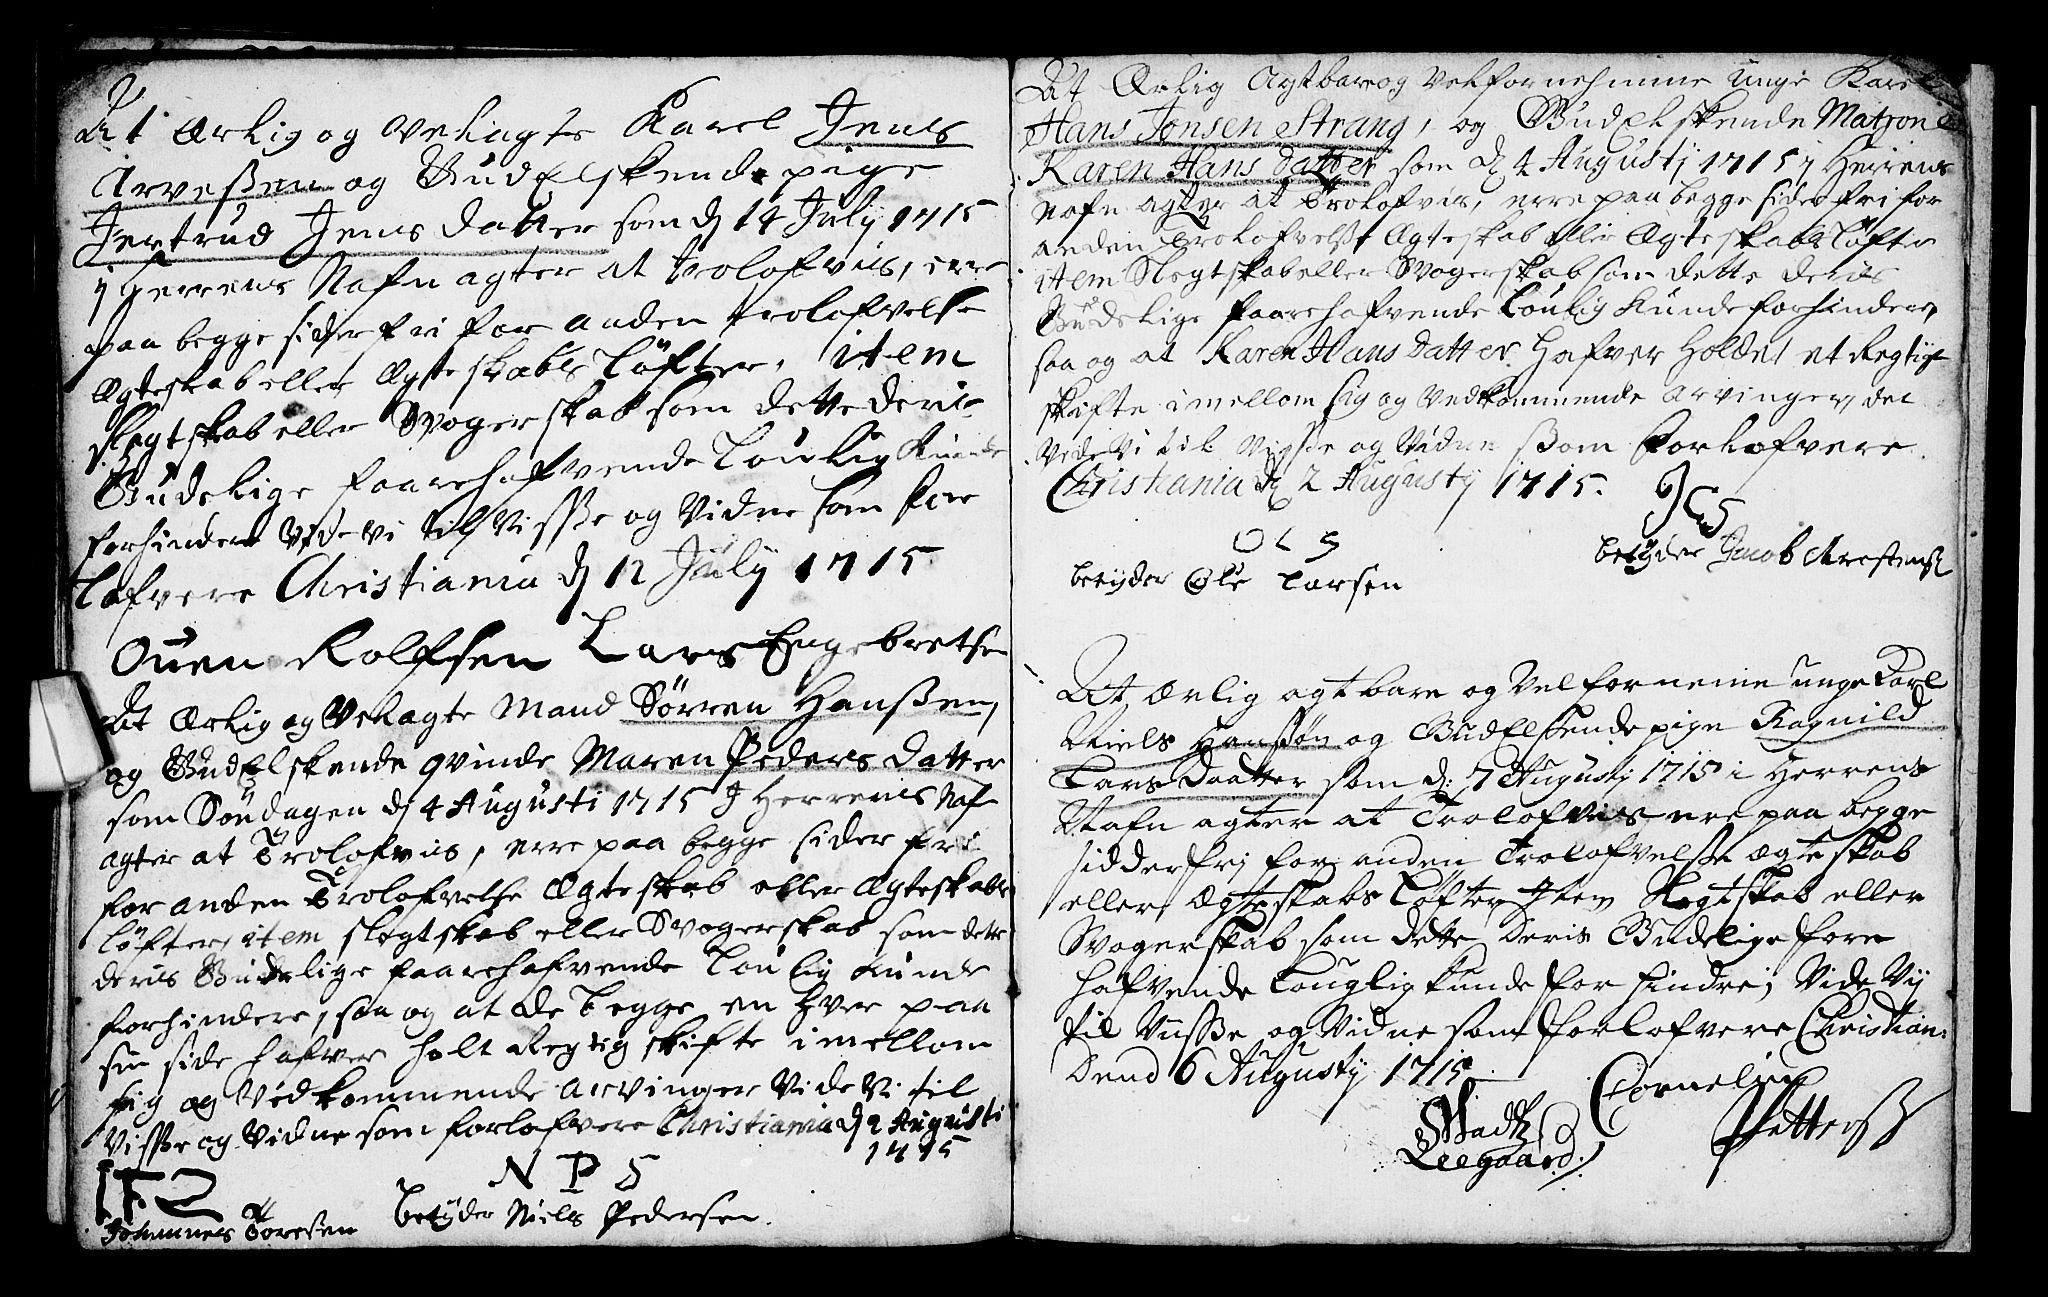 At Ærlig og Velagte Karel Jens
Arveßen og Gud Elskende pige
Jertrud Jens datter som d 14 July 1715
j Herrens Nafn agter at Trolofvis, erre
paa begge sider fri for anden trolofvelse
Ægteskab eller Ægteskabs Löfter, item
Slegtskab eller Svogerskab som dette deris
Gudelige foorehafvende Loulig kunde
forhindere Vide vi til Visße og Vidne som for
lofvere Christiania d 12 July 1715
Ouen Rolfsen Lars Engebretsen
At Ærlig og Velagte Mand Sörren Hanßen,
og Gud Elskende qvinde Maren Peders Datter
som Söndagen d 4 Augusti 1715 J Herrens Naf
agter at Trolofvis, erre paa begge sider fri
for anden Trolofvelse Ægteskab eller Ægteskabs
löfter, item slegtskab eller Svogerskab som dette
deris Gudelige foorehafvende Loulig kunde
forhindere, saa og at de begge en hver paa
sin side hafver holt Regtig skifte imellom
sig og Vedkommende Arvinger Vide Vi til
Visße og Vidne som forlofvere Christiania d 2 Augusti
1715
ITS
N P S
Johannes Toresen
betÿder Niels Pedersen.
At Ærlig Agtbare og Velfornehmme unge Karl
Hans Jonsen Strang, og Gud Elskende Matrone
Karen Hans Datter som d 4 Augustj 1715 j Herrens
Nafn agter at Trolofvis, erre paa begge sider fri for
anden Trolofvelße Ægteskab eller Ægteskabs Löfter
item Slegtskab eller Svogerskab som dette deris
Gudelige foorehafvende Loulig kunde forhindere,
saa og at Karen Hans Datter Hafver Holdet et Regtigt
skifte imellom sig og Vedkommende Arvinger, det
Vede Vi til Visße og Vidne ßom Forlofvere
Christiania d 2 Augustij 1715.
J C S
O L S
betÿder Jacob Chrestensß
betÿder Ole Larsen
At ærlig agtbare og Velforneme unge Karl
Niels Hanssön og Gud Elskende pige Ragnild
Lars Daatter som d: 7 Augustj 1715 i Herrens
Nafn agter at Trolofvis ere paa begge
sidder frj for anden Trolofvelße ægteskab
eller Ægteskabs Löfter Item Slegtskab eller
Svogerskab som dette deris Gudelige fore
hafvende Louglig kunde forhindre; Vide Vij
til Viisße og Vidne som forlofvere Christian:
Dend 6 Augustij 1715
Cornelius
Petterß
Madtz
Leegaard